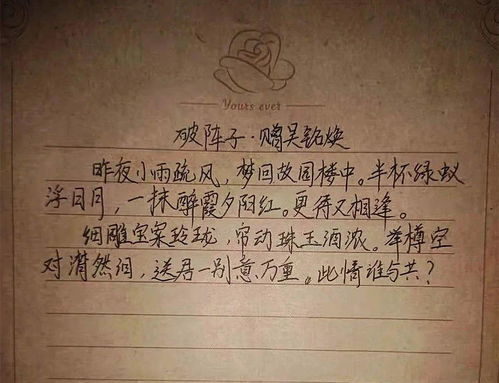 Yours ever
破阵子·赠吴铭焕
昨夜小雨疏风，梦回故园楼中。半杯绿蚁
浮日月，一抹醉霞夕阳红。更得又相逢。
细雕宝案玲珑，帘动珠玉酒浓。举樽空
对潸然泪，送君一别意万重。此情谁与共？